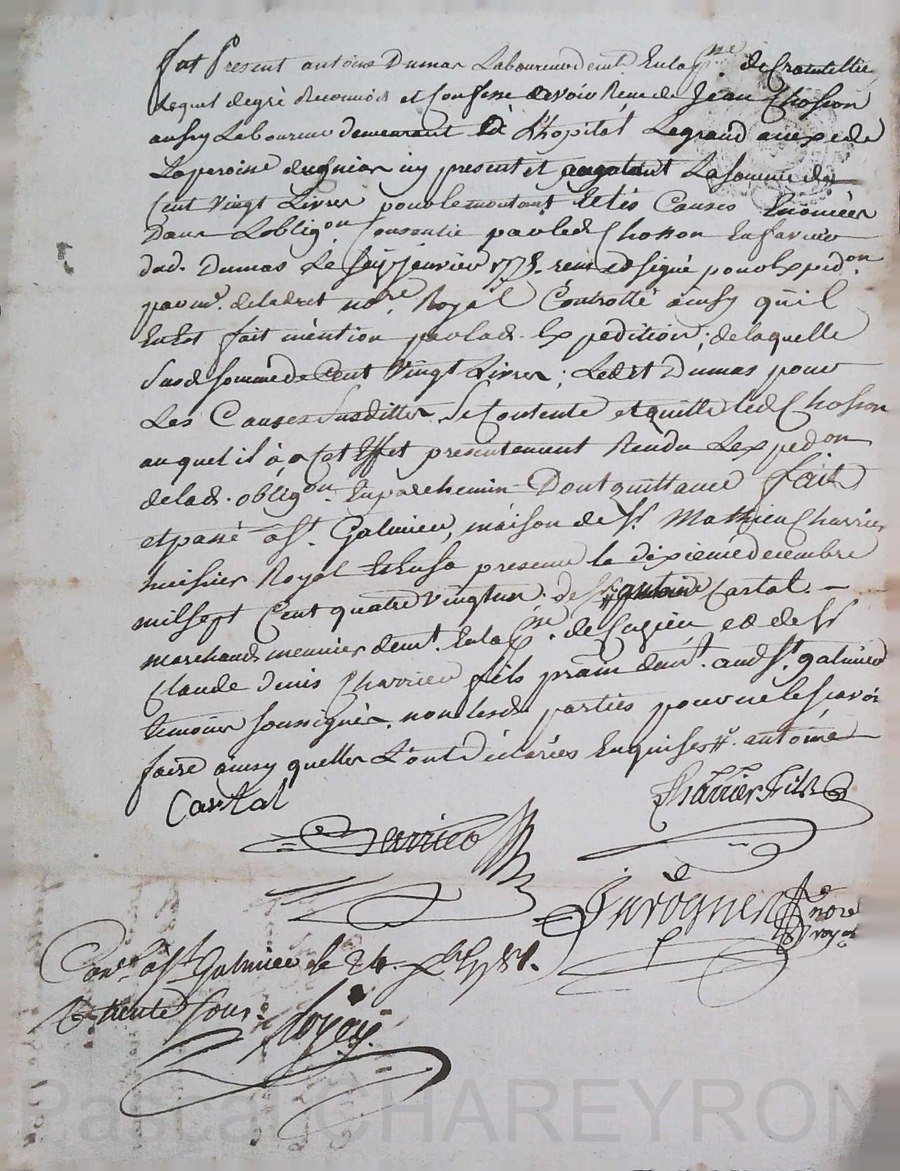 fut Present antoine Dumas Laboureur demt. En la pne. de Craintillieu
Lequel degré Reconnois et Confesse avoir Recu de Jean Chosson
aussy Laboureur demeurant à L'hopital Legrand anexe de
La peroisse present et La somme de
Cent vingt Livres pour le montant Et les Causes Enoncées
Dans Lobligon. Consentie par led Chosson En faveur
dud. Dumas Le janvier signé pour Expedon.
par me. deladret nore. Royal Controllé ainsy quil
En Est fait mention par lad. Expedition; de laquelle
Susd somme de Cent vingt Livres; Ledit Dumas pour
Les Causes Susditte Se Contente et quitte led Chosson
auquel il à a Cet Effet presentement Rendu Lexpedon
de lad. obligon. En parchemin Dont quittance fait
et passé a St. Galmier, maison de Sr. Mathieu Charrier
huissier Royal Et En sa presence le dixieme decembre
mil sept Cent quatre vingt un. de Sr antoine Cartal. –
marchand meunier demt. En la pne. de Cuzieu et de Sr
Claude denis Charrier fils demt. aud St. galmier
temoins soussignés. non lesd parties pour ne le scavoir
faire ainsy quelles L'ont déclarées Enquises . antoine
Cartal
Charrier fils
Charrier
nore
royal
Conlé. a St Galmier le 24. Xbre 1781.
R. trente Sous
Pascal CHAREYRON